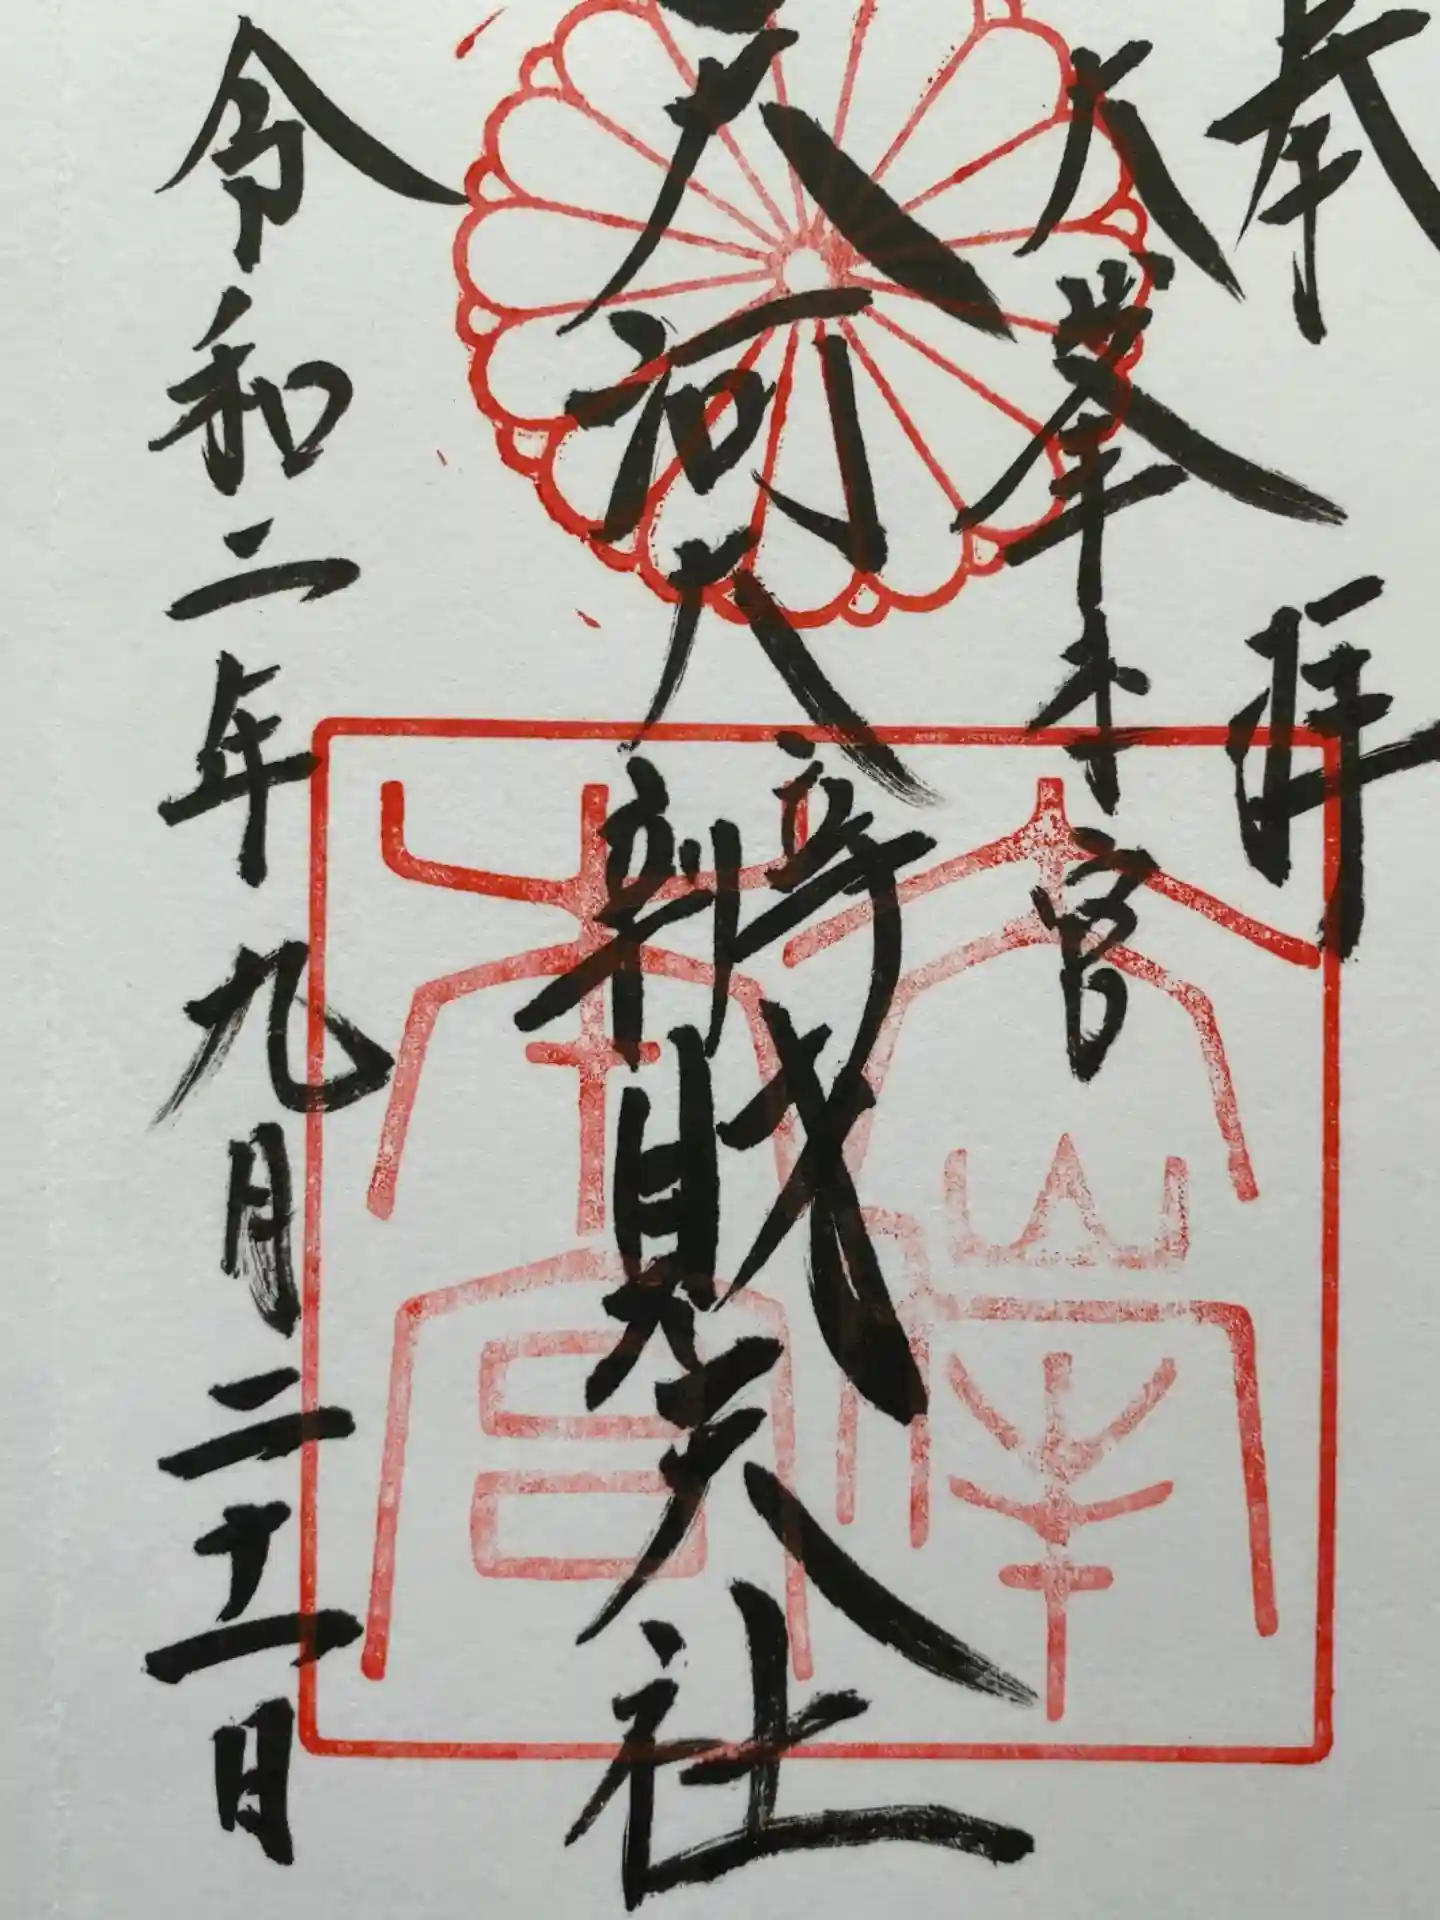 奉拝
大峯本宮
天河大辨財天社
令和二年九月二十一日
大峯
本宮